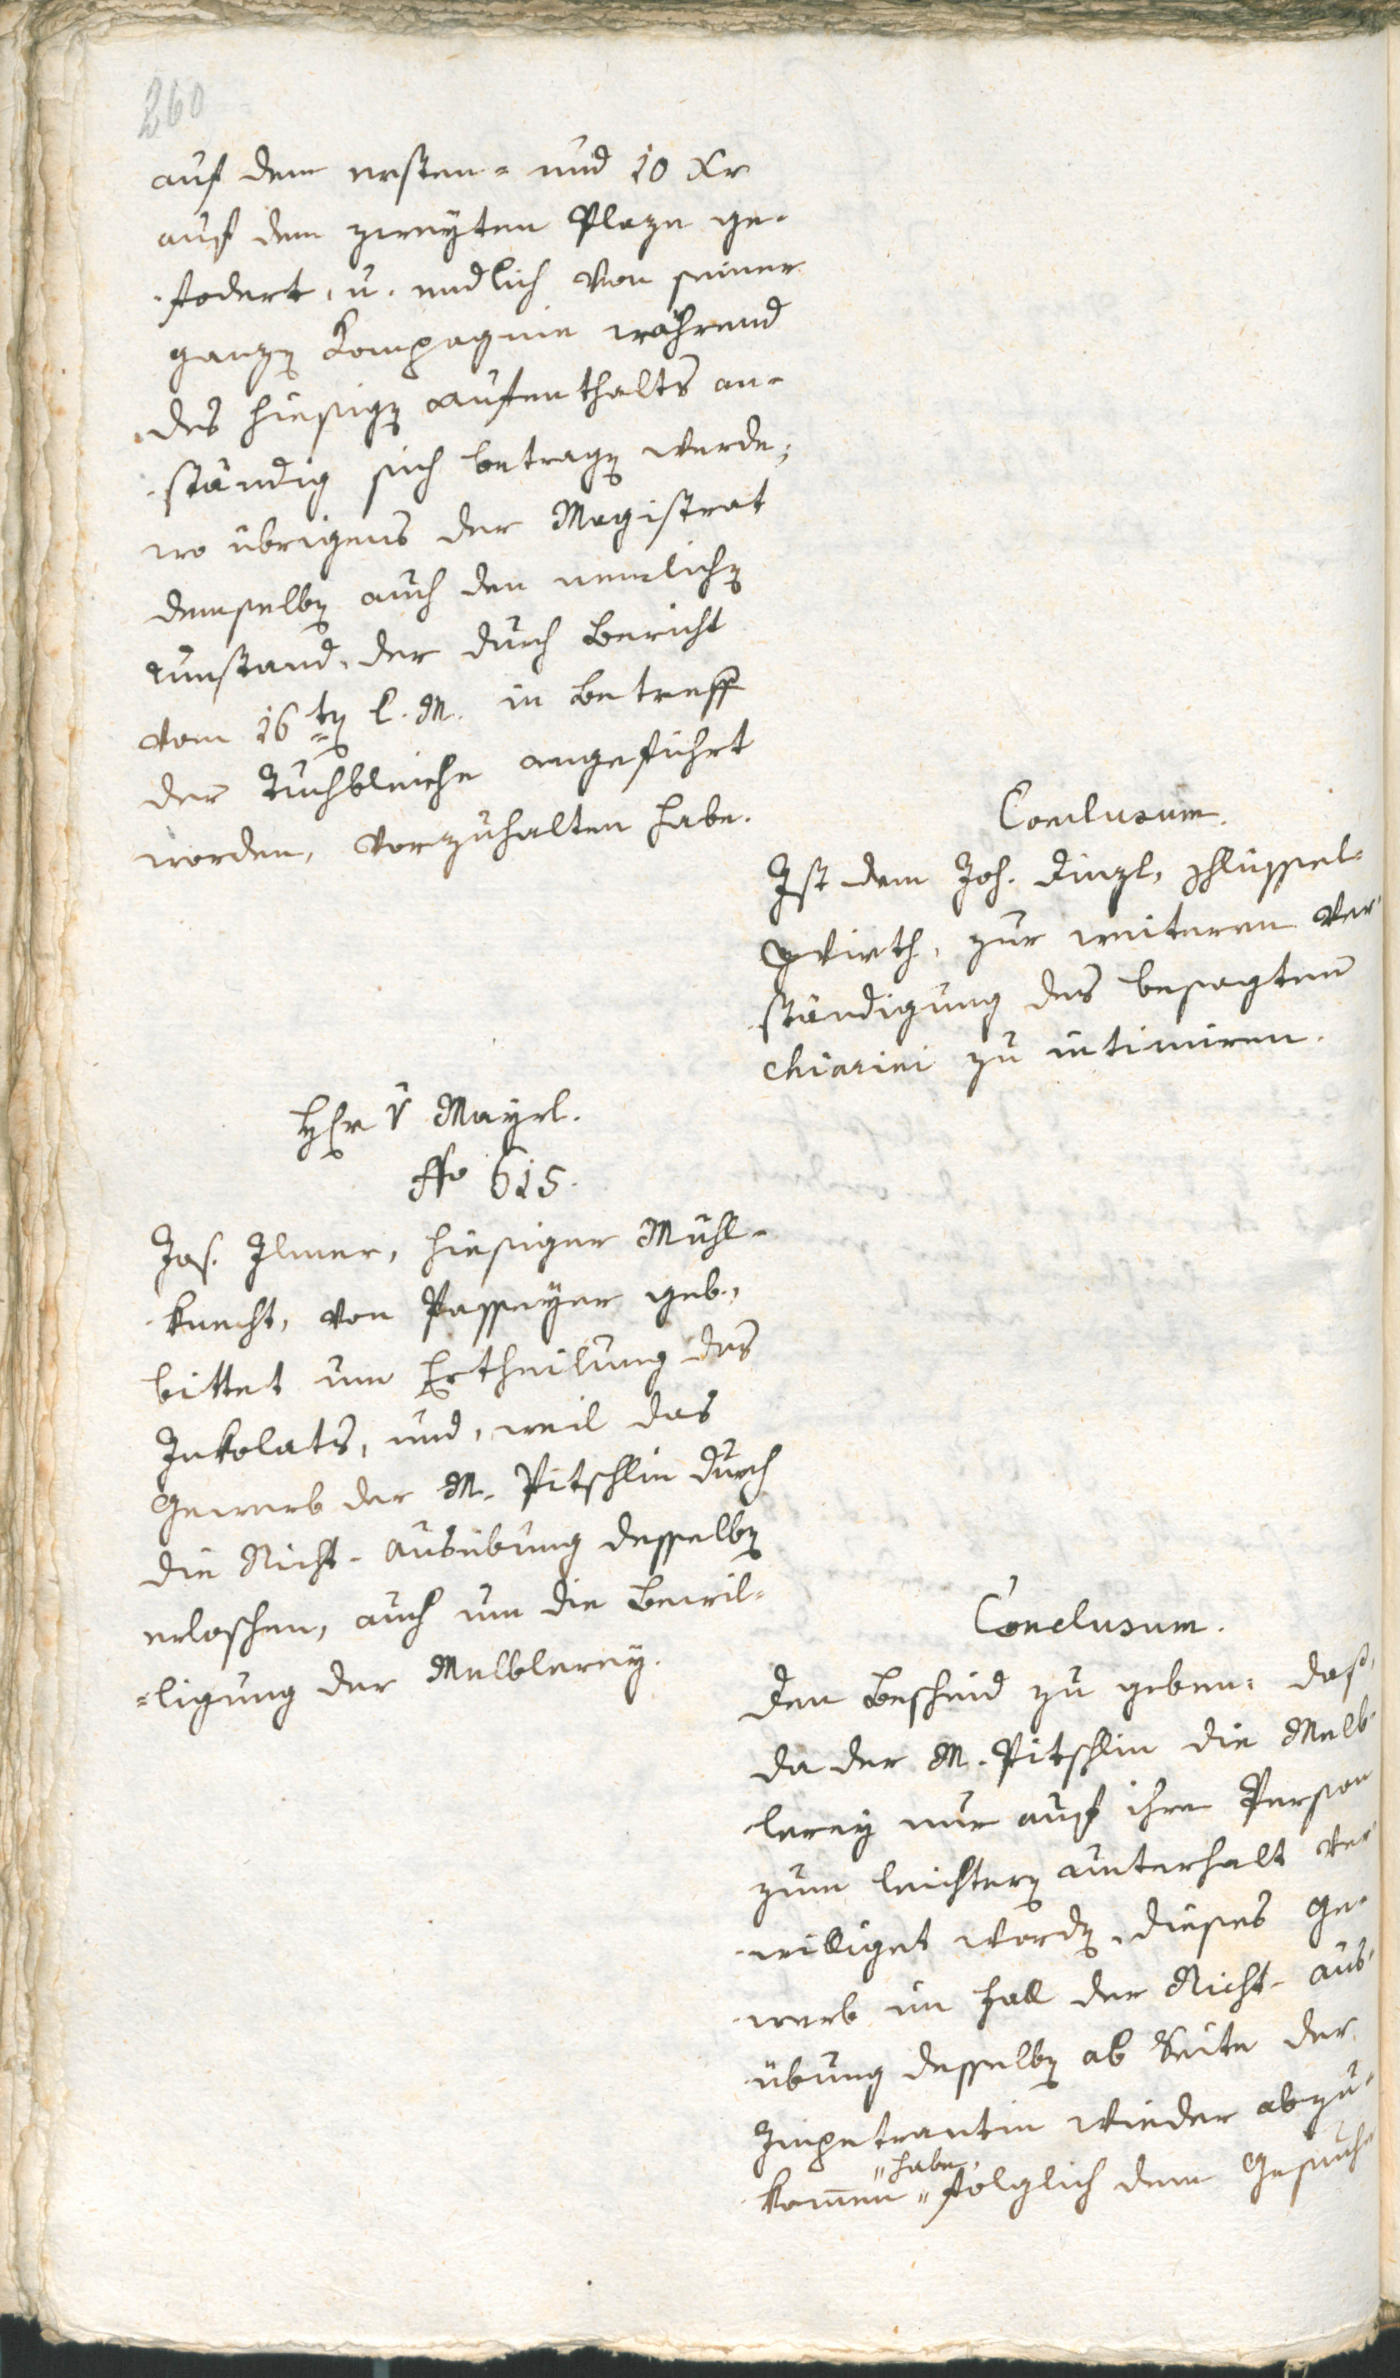 260
auf dem ersten- und 10 Xr
auf dem zweyten Plaze ge-
fodert, u. endlich von seiner
ganzen Kompagnie während
des hiesigen Aufenthalts an-
ständig sich betragen werde;
wo übrigens der Magistrat
demselben auch den nemlichen
Umstand, der durch Bericht
vom 16ten l. M. in Betreff
der Tuchbleiche angeführt
worden, vorzuhalten habe.
Conclusum.
Ist dem Joh. Dinzl, Schlüssel-
wirth, zur weiteren Ver-
ständigung des besagten
Chiarini zu intimiren.
Hr v Mayrl.
No 615.
Jos. Ilmer, hiesiger Mühl-
knecht, von Passeyer geb.,
bittet um Ertheilung des
Inkolats, und, weil das
Gewerb der M. Pitschlin durch
die Nicht-Ausübung desselben
erloschen, auch um die Bewil-
=ligung der Melblerey.
Conclusum.
Den Bescheid zu geben: daß,
da der M. Pitschlin die Melb-
lerey nur auf ihre Person
zum leichtern Unterhalt ver-
williget worden, dieses Ge-
werb im Fall der Nicht-Aus-
übung desselben ab Seite der
Impetrantin wieder abzu-
kommen "habe," folglich dem Gesuche